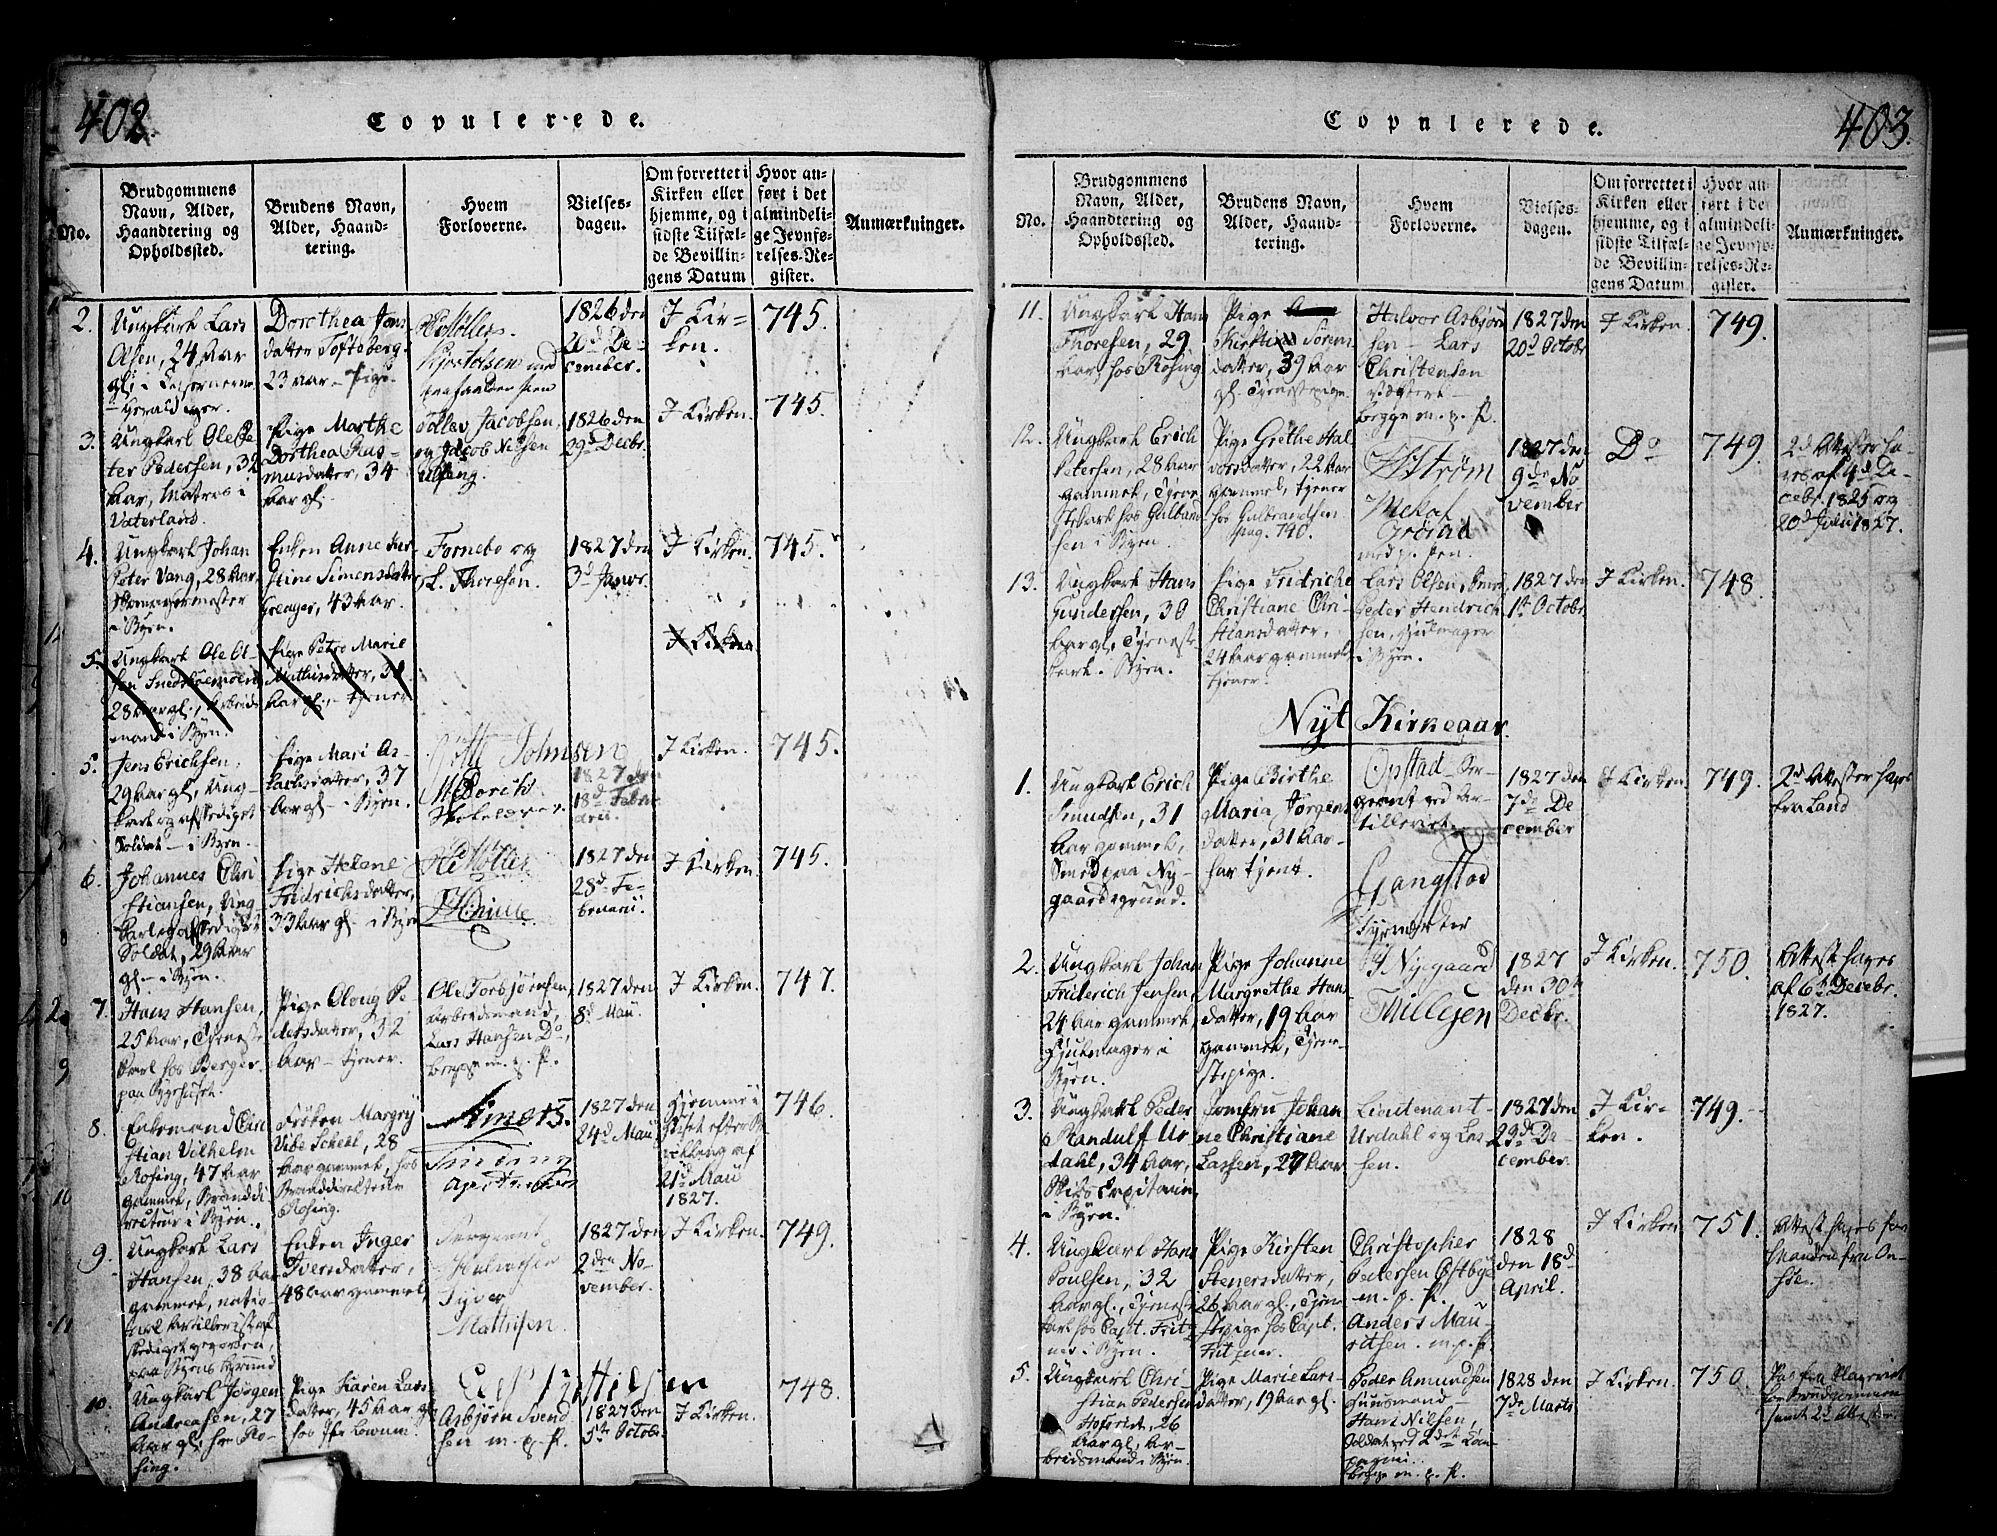 402.
Copulerede.
No.
Brudgommens
Navn, Alder,
Haandtering og
Opholdssted.
Brudens Navn,
Alder, Haand-
tering.
Hvem
Forloverne.
Vielses-
dagen.
Om forrettet i
Kirken eller
hjemme, og i
sidste Tilfæl-
de Bevillin-
gens Datum
Hvor an-
ført i det
almindeli-
ge Jevnfø-
relses-Re-
gister.
Anmærkninger.
2.
Ungkarl Lars
Olsen, 24 Aar
Dorothea Jans
datter Toftsberg
23 Aar - Pige.
1826 den
20d De-
cember.
I Kir-
ken.
745.
3.
Ungkarl Ole Pe-
ter Pedersen, 32
Aar, Matros i
Vaterland.
Pige Marthe
Dorthea Ras-
musdatter, 34
Aar gl.
Tollev Jacobsen,
og Jacob Nilsen
1826 den
29d Decbr.
I Kirken.
745.
4.
Ungkarl Johan
Peter Vang, 28 Aar,
Skomagermester
i Byen.
Enken Anne Kir-
stine Simensdatter
43 Aar.
Fornebo og
L. Thoresen.
1827 den
3d Janvr.
I Kirken.
745.
5.
Ungkarl Ole Ol-
sen
28 Aar gl., Arbeids
mand i Byen.
Pige Petro Marie
Mathisdatter, 31
Aar gl. - tjener
I Kirken
5.
Jens Erichsen,
29 Aar gl, Ung-
karl og afskediget
Soldat - i Byen.
Pige Mari As-
lachsdatter, 37
Aar gl - i Byen.
Johnsen
1827 den
18d Febru
arii.
I Kirken.
745.
6.
Johannes Chri
stiansen, Ung-
Soldat, 29 Aar
gl - i Byen.
Pige Helene
Fridrichsdatter,
33 Aar gl - i Byen
Møller
1827 den
28d Fe-
bruarii.
I Kirken.
745.
7.
Hans Hansen,
25 Aar, Tjeneste
Karl hos Berger
Pige Oloug Pe
dersdatter, 32
Aar - tjener.
Ole Torbjørnsen,
Arbeidsmand,
Lars Hansen Do,
begge m. p. P.
1827 den
8d Mai.
I Kirken.
747.
8.
Enkemand Chri
stian Vilhelm
Rosing, 47 Aar
gammel, Branddi
recteur i Byen.
Frøken Margrÿ
Vibe Scheel, 28
Aar gammel, hos
Branddirecteur
Rosing.
1827 den
24d Mai.
Hjemme i
Huset efter Be
villing af
21d Mai
1827.
746.
9.
Ungkarl Lars
Hansen, 38 Aar
gammel, natio-
Enken Inger
Iversdatter,
48 Aar gammel,
Sergeant
Syver
Mathisen.
1827 den
2den No-
vember.
I Kirken.
749.
10.
Ungkarl Jørgen
Andreasen, 27
Aar gl. hos Ro-
sing.
Pige Karen Lars
datter, 45 Aar gl
Asbjørn Svend
sen m. p. P.
1827 den
5te Octobr
I Kirken.
748.
403.
Copulerede.
No.
Brudgommens
Navn, Alder,
Haandtering og
Opholdssted.
Brudens Navn,
Alder, Haand-
tering.
Hvem
Forloverne.
Vielses-
dagen.
Om forrettet i
Kirken eller
hjemme, og i
sidste Tilfæl-
de Bevillin-
gens Datum
Hvor an-
ført i det
almindeli-
ge Jevnfø-
relses-Re-
gister.
Anmærkninger.
11.
Ungkarl Hans
Thoresen, 29
Aar, hos Rosing
Pige
Kirstine Søren
datter, 39 Aar
gl. Tjenestepige
Halvor Asbjørn
sen - Lars
Christensen
begge m. p. P.
1827 den
20d Octobr
I Kirken.
749.
12.
Ungkarl Erich
Petersen, 28 Aar
gammel, Tjene
stekarl hos Gulbrand
sen i Byen
Pige Grethe Hal
vorsdatter, 22 Aar
gammel, tjener
hos Gulbrandsen
pag. 790.
Strøm
med p. Pen.
1827 den
9de No
vember
Do
749.
2d Attester ha-
ves af 4d De-
cebr. 1825 og
20d Juli 1827.
13.
Ungkarl Hans
Gundersen, 30
Aar gl, Tjeneste
karl. Byen.
Pige Fridriche
Christiane Chri-
stiansdatter,
24 Aar gammel
tjener.
Lars Olsen,
Peder Hendrich
sen, Hjulmager
i Byen.
1827 den
1st Octobr
I Kirken.
748.
Nyt Kirkeaar.
1.
Ungkarl Erich
Knudsen, 31
Aar gammel,
Smed paa Ny-
gaardsgrund.
Pige Birthe
Maria Jørgens
datter, 31 Aar
har tjent.
Opstad - Ser-
geant ved Ar-
tilleriet.
Gangstad
1827 den
7de De
cember
I Kirken.
749.
2d Attester haves
fra Land
2.
Ungkarl Johan
Friderich Jensen,
24 Aar gammel,
Hjulmager i
Byen.
Pige Johanne
Margrethe Hans
datter, 19 Aar
gammel, Tjene-
stepige.
Nygaard
1827
den 30te
Decbr.
I Kirken.
750.
Attest haves
af 6te Decebr.
1827.
3.
Ungkarl Peder
Randulf Ur-
dahl, 34 Aar,
i Byen.
Jomfru Johan
ne Christiane
Lassen, 27 Aar
Lieutenant
Urdahl og Las-
sen.
1827 den
29d De-
cember.
I Kir-
ken.
749.
4.
Ungkarl Hans
Poulsen, 32
Aar gl., Tjeneste
karl hos Capt. Fritz
ner i Byen.
Pige Kirsten
Stenersdatter,
26 Aar gl., Tjene
stepige hos Capt.
Fritzner.
Christopher
Pedersen Østbye
m. p. P.
Anders Mau-
ritsen. m. p. P
1828
den 18d
April.
I Kirken
751.
5.
Ungkarl Chri
stian
26
Aar gl, Ar-
beidsmand i Byen.
Pige Marie Lars-
datter, 19 Aar gl.
Peder Amundsen
Huusmand -
Hans Nilsen,
begge m. p. P.
1828 den
7de Marts
I Kirken.
750